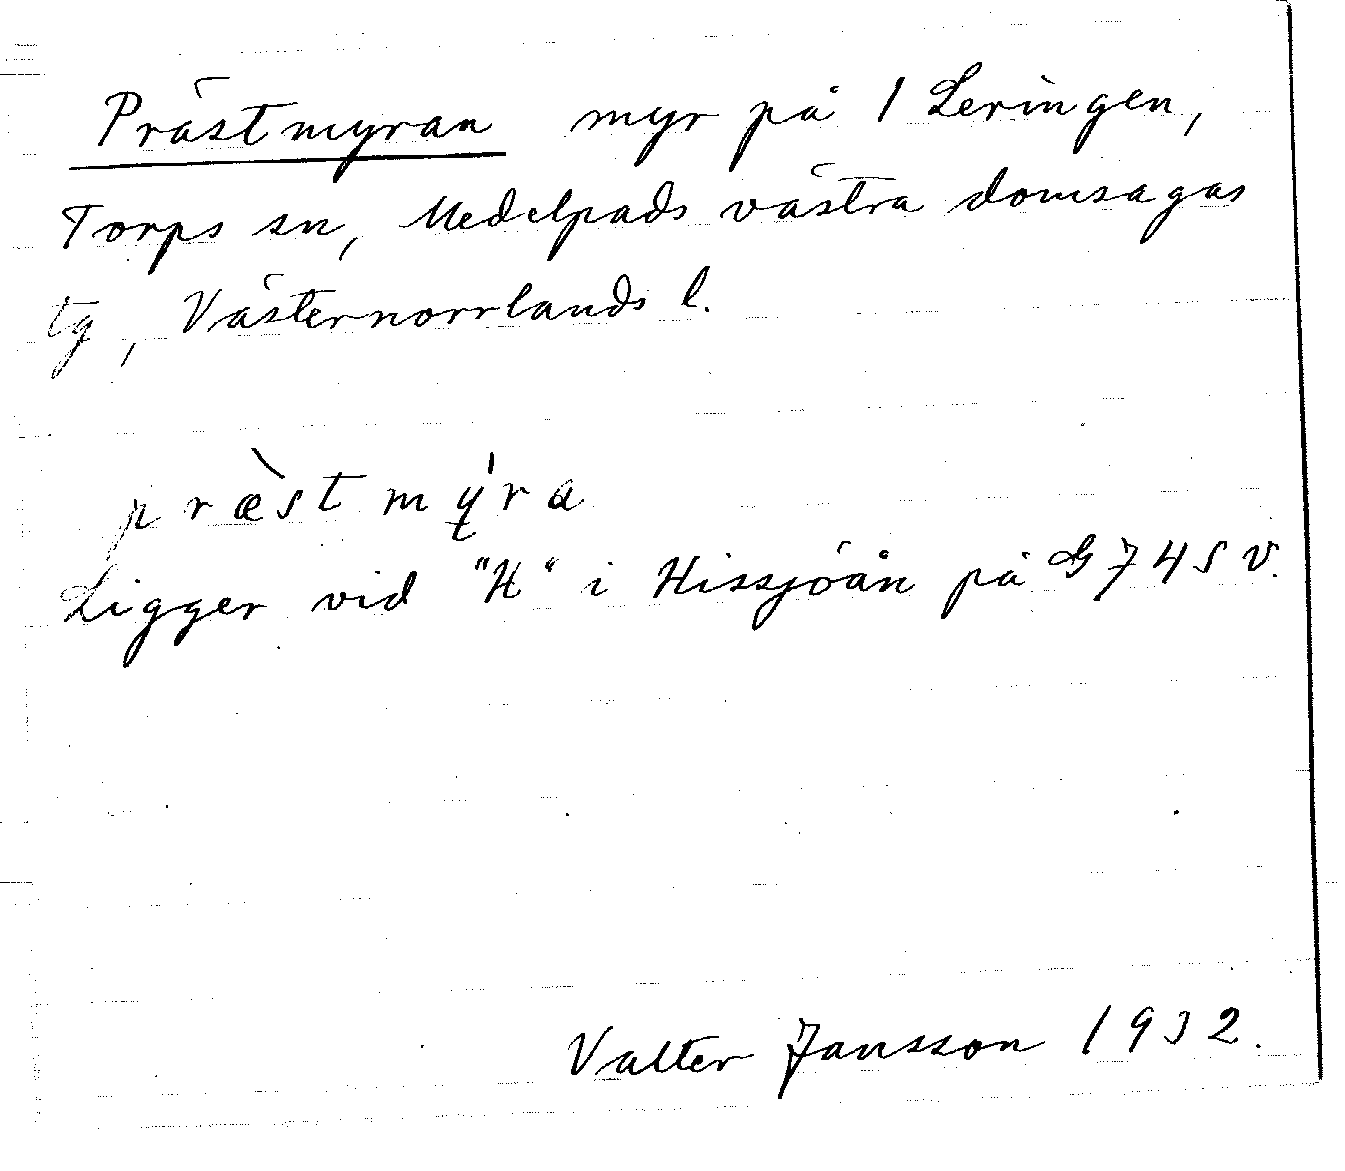 Prästmyran myr på 1 Leringen,
Torps sn, Medelpads västra domsagas
tg, Västernorrlands l.
præ̀stmý̨ra
Ligger vid "H" i Hissjöån på G 74 S V.
Valter Jansson 1932.